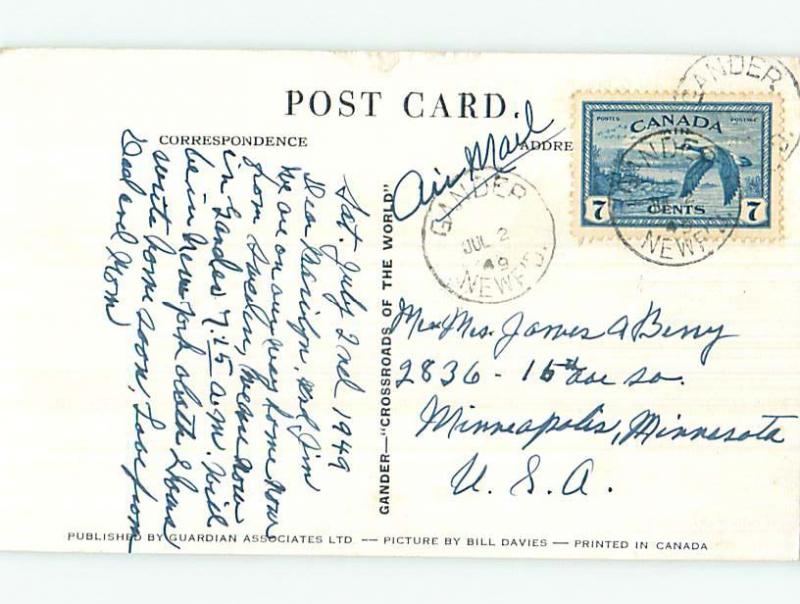 POST CARD.
CORRESPONDENCE
ADDRE
Air Mail
Sat. July 2nd 1949
Dear Marilyn and Jim
We are on our way home now
from Sweden, we are now
in Gander 7.15 a.m. Will
be in New York about 2 hours,
write some soon, Love from
Dad and Mom
GANDER—"CROSSROADS OF THE WORLD"
GANDER
JUL 2
49
NEWF'D.
POSTES POSTAGE
CANADA
7 CENTS 7
GANDER
NEWF'D.
GANDER
D.
Mr. Mrs. James A Berry
2836 - 15th ave so.
Minneapolis, Minnesota
U. S. A.
PUBLISHED BY GUARDIAN ASSOCIATES LTD — PICTURE BY BILL DAVIES — PRINTED IN CANADA